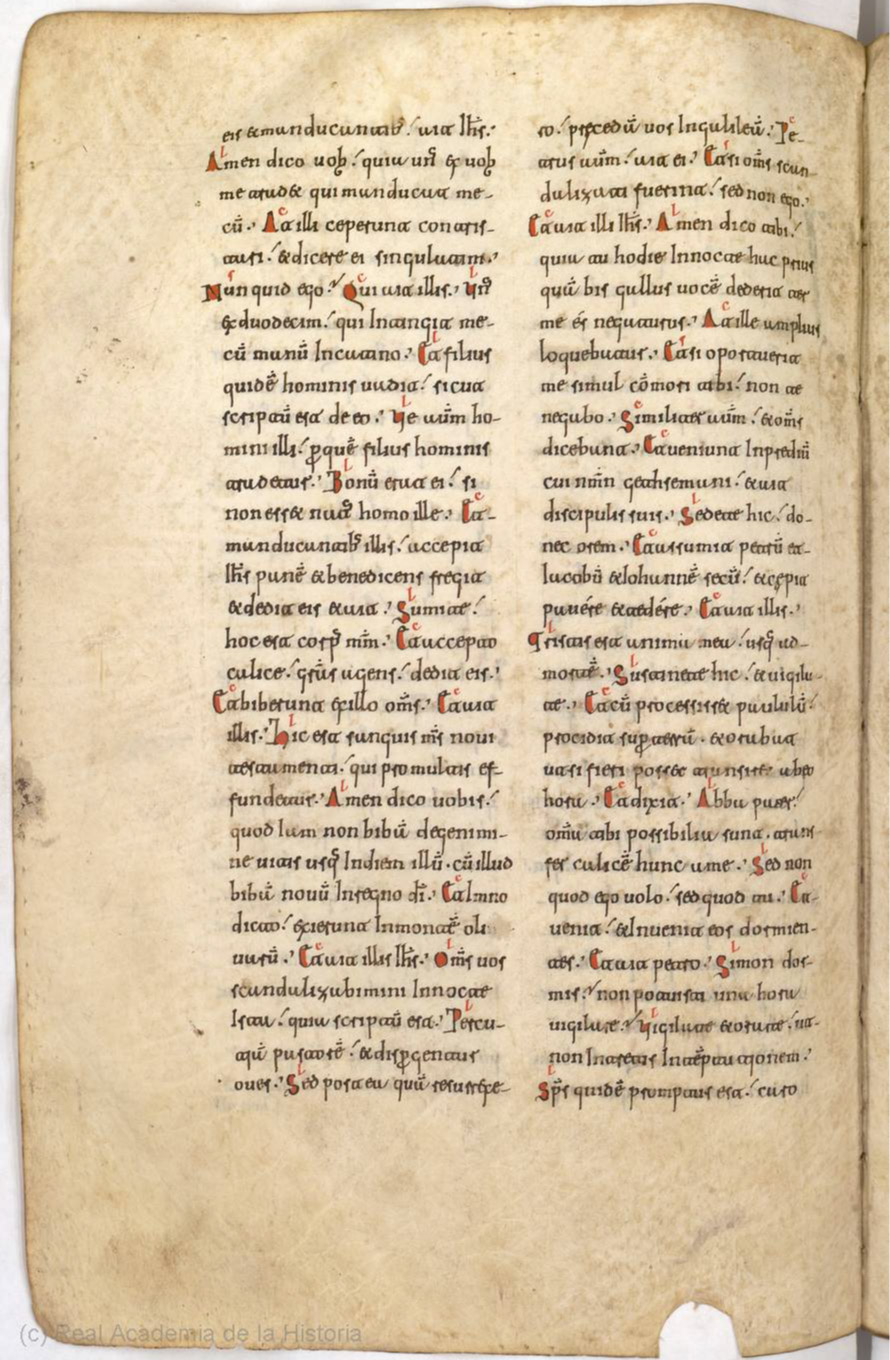 eis & manducantibꝰ / ait Ihs̄.
Amen dico uob̄ / quia un̄s ex uob̄
me tradet qui manducat me-
cū. At illi ceperunt contris-
tari / & dicere ei singulatim.
Nunquid ego? Qui ait illis. Un̄s
ex duodecim / qui Intingit me-
cū manū Incatino. Et filius
quidē hominis uadit / sicut
scriptū est de eo. Ue aūm ho-
mini illi / ꝑ quē filius hominis
tradetur. Bonū erat ei / si
non esset natꝰ homo ille. Et
manducantibꝰ illis / accepit
Ihs̄ panē & benedicens fregit
& dedit eis & ait. Sumite /
hoc est corpꝰ mm̄. Et accepto
calice / grās agens / dedit eis.
Et biberunt ex illo om̄s. Et ait
illis. Hic est sanguis ms̄ noui
testamenti / qui pro multis ef-
fundetur. Amen dico uobis /
quod Iam non bibā de genimi-
ne uitis usq̄ Indiem illū . cū illud
bibā nouū Inregno dī. Et Imno
dicto / exierunt Inmontē oli
uarū. Et ait illis Ihs̄. Om̄s uos
scandalizabimini Innocte
Ista / quia scriptū est. Percu-
tiā pastorē / & dispergentur
oues. Sed postea quā resurrexe-
ro / precedā uos Ingalileā. Pe-
trus aūm / ait ei. Etsi om̄s scan-
dalizati fuerint / sed non ego.
Et ait illi Ihs̄. Amen dico tibi /
quia tu hodie Innocte hac prius
quā bis gallus uocē dederit ter
me es negaturus. At ille amplius
loquebatur. Etsi oportuerit
me simul cōmori tibi / non te
negabo. Similiter aūm / & om̄s
dicebant. Et ueniunt Inprediū
cui nm̄n gethsemani / & ait
discipulis suis. Sedete hic / do-
nec orem. Et assumit petrū et
Iacobū & Iohannē secū / & cepit
pauere & tedere. Et ait illis.
Tristis est anima mea / usq̄ ad
mortē. Sustinete hic / & uigila-
te. Et cū processisset paululū /
procidit sup̄ terrā . & orabat
ut si fieri posset transiret ab eo
hora. Et dixit. Abba pater /
om̄a tibi possibilia sunt . trans-
fer calicē hunc a me. Sed non
quod ego uolo / sed quod tu. Et
uenit / & Inuenit eos dormien-
tes. Et ait petro. Simon dor-
mis? non potuisti una hora
uigilare? Uigilate & orate / ut
non Intretis Intēptationem.
Sp̄s quidē promptus est / caro